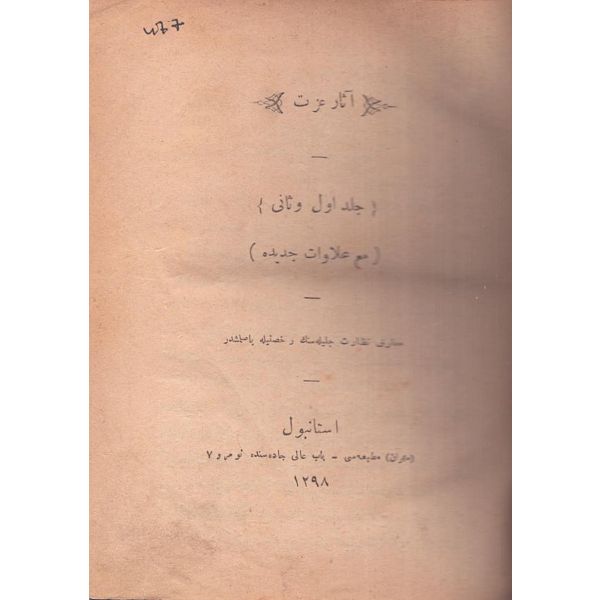 467
آثار عزت
{ جلد اول و ثانی }
( مع علاوات جدیده )
معارف نظارت جلیله‌سنك رخصتیله باصلمشدر
استانبول
(مهران) مطبعه‌سی - باب عالی جاده‌سنده نومرو ٧
١٢٩٨